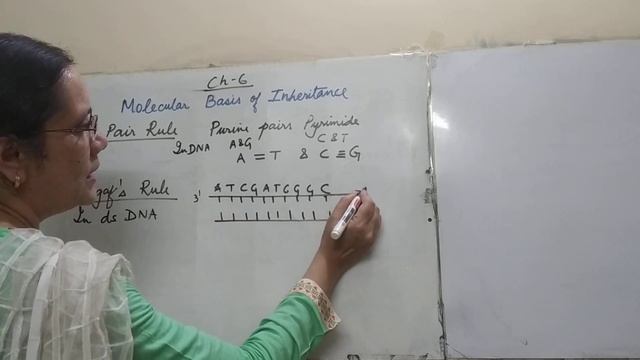 Ch-6
Molecular Basis of Inheritance
Pair Rule Purine pairs Pyrimide
In DNA A&G C&T
A = T & C ≡ G
Rule 3'
In ds DNA